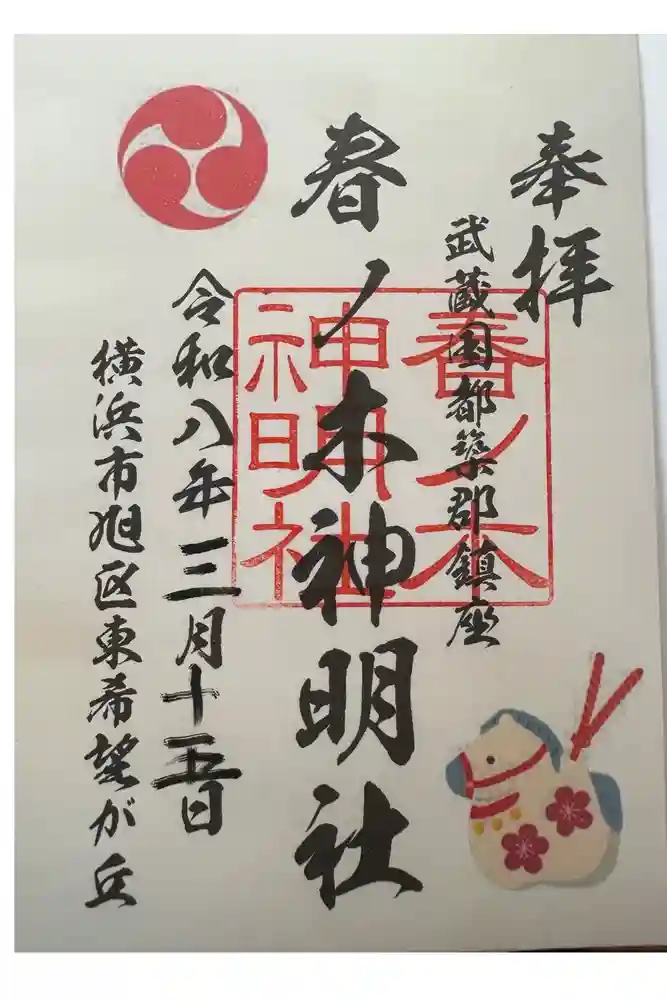 奉拝
武蔵国都築郡鎮座
春ノ木神明社
春ノ木
神明社
令和八年三月十五日
横浜市旭区東希望が丘